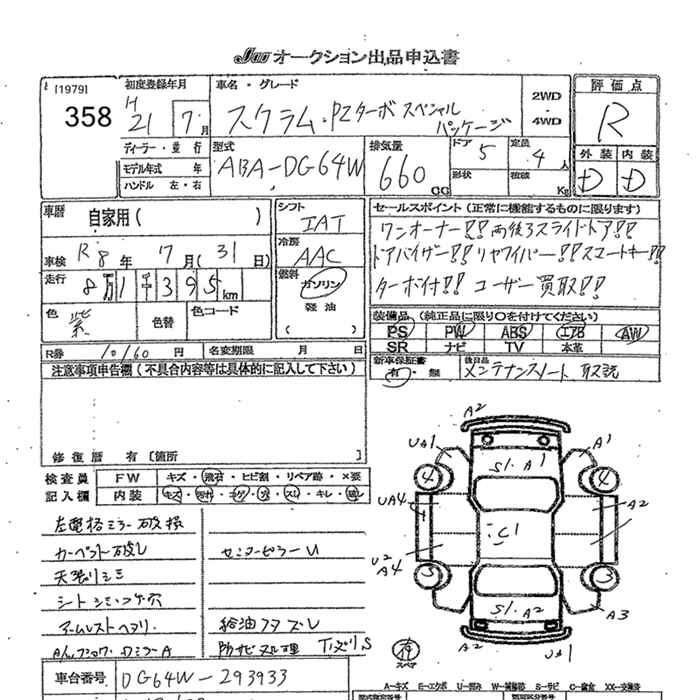 JAA オークション出品申込書
[1979]
358
初度登録年月
H 21年 7月
車名・グレード
スクラム・PZターボスペシャル
パッケージ
2WD
4WD
評価点
R
外装 内装
D D
ディーラー・並行
モデル年式 年
ハンドル 左・右
型式
ABA-DG64W
排気量
660 CC
ドア
5
形状
定員
4人
積載
Kg
車歴
自家用( )
車検 R8年 7月(31日)
走行
8万1千395km
色
紫
色替
色コード
シフト
IAT
冷房
AAC
燃料
ガソリン
軽油
( )
セールスポイント(正常に機能するものに限ります)
ワンオーナー!! 両後ろスライドドア!!
ドアバイザー!! リヤワイパー!! スマートキー!!
ターボ付!! ユーザー買取!!
装備品(純正品に限り○を付けてください)
PS PW ABS エアB AW
SR ナビ TV 本革
R券 10160 円
名変期限 月 日
新車保証書
有・無
後日品
メンテナンスノート 取説
注意事項申告欄(不具合内容等は具体的に記入して下さい)
修復歴 有[箇所 ]
検査員
記入欄
FW キズ・飛石・ヒビ割・リペア跡・×要
内装 キズ・汚れ・コゲ・穴・スレ・キレ・
左電格ミラー破損
カーペット破レ
天張りシミ
シートシミ・コゲ穴
アームレストヘタリ
センターピラーU
給油フタズレ
防サビ処理 下ズリS
車台番号 DG64W-293933
A2
UA1
A1
S1. A1
4 4
UA4
A2
C1
U2
A4
3 3
A3
S1. A2
A2
UA1
有
スペア
A-キズ E-エクボ U-凹み W-補修跡 S-サビ C-腐食 XX-交換済